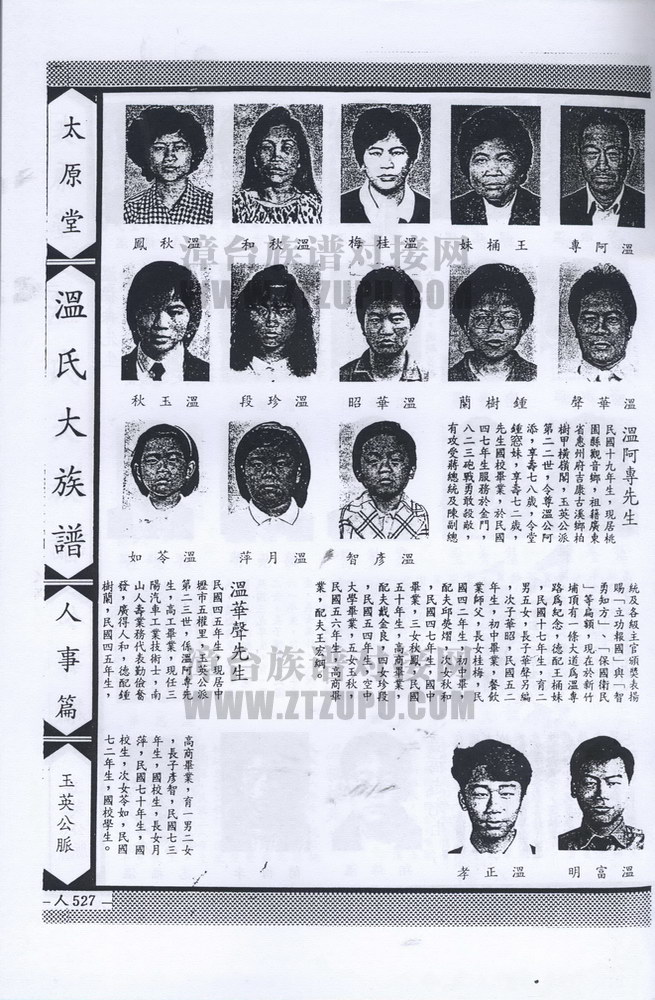 太原堂
溫氏大族譜
人事篇
玉英公脈
溫阿專
王桶妹
溫桂梅
溫秋和
溫秋鳳
溫華聲
鍾樹蘭
溫華昭
溫珍段
溫玉秋
溫彥智
溫月萍
溫苓如
溫阿專先生
民國十九年生，現居桃
園縣觀音鄉，祖籍廣東
省惠州府吉康古溪鄉柏
樹甲橫嶺閣，玉英公派
第二二世，令尊溫公阿
添，享壽七八歲，令堂
鍾窓妹，享壽七二歲，
先生國校畢業，於民國
四七年生服務於金門，
八二三砲戰勇敢殺敵，
有功受蔣總統及陳副總
統及各級主官頒獎表揚
賜「立功報國」與「智
勇知方」、「保國衛民
」等扁額，現在於新竹
埔頂有一條大道為溫專
路為紀念，德配王桶妹
，民國十七年生，育二
男五女，長子華聲另編
，次子華昭，民國五二
年生，初中畢業，餐飲
業師父，長女桂梅，民
國四二年生，初中畢，
配夫邱熒熠，次女秋和
，民國四八年生，國中
畢業，三女秋鳳，民國
五十年生，高商畢業，
配夫戴金良，四女珍段
，民國五四年生，空中
大學畢業，五女玉秋，
民國五六年生，高商畢
業，配夫王宏綱。
溫華聲先生
民國四五年生，現居中
壢市五權里，玉英公派
第二三世，係溫阿專先
生，高工畢業，現任三
陽汽車工業技術士，南
山人壽業務代表勤儉奮
發，廣得人和，德配鍾
樹蘭，民國四五年生，
高商畢業，育一男二女
，長子彥智，民國七三
年生，國校生，長女月
萍，民國七十年生，國
校生，次女苓如，民國
七二年生，國校學生。
溫富明
溫正孝
人527
漳台族谱对接网
WWW.ZTZUPU.COM
漳台族谱对接网
WWW.ZTZUPU.COM